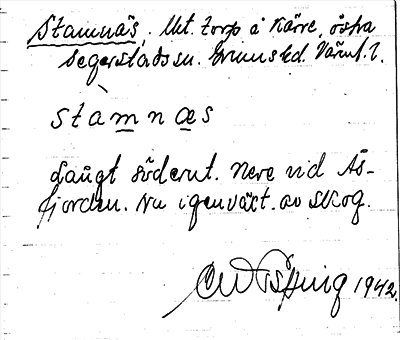 Stamnäs. Utt. torp å Kärre, östra
Segerstads sn. Grums hd. Värml. l.
stamnæs
Långt söderut. Nere vid Ås-
fjorden. Nu igenväxt av skog.
1942.